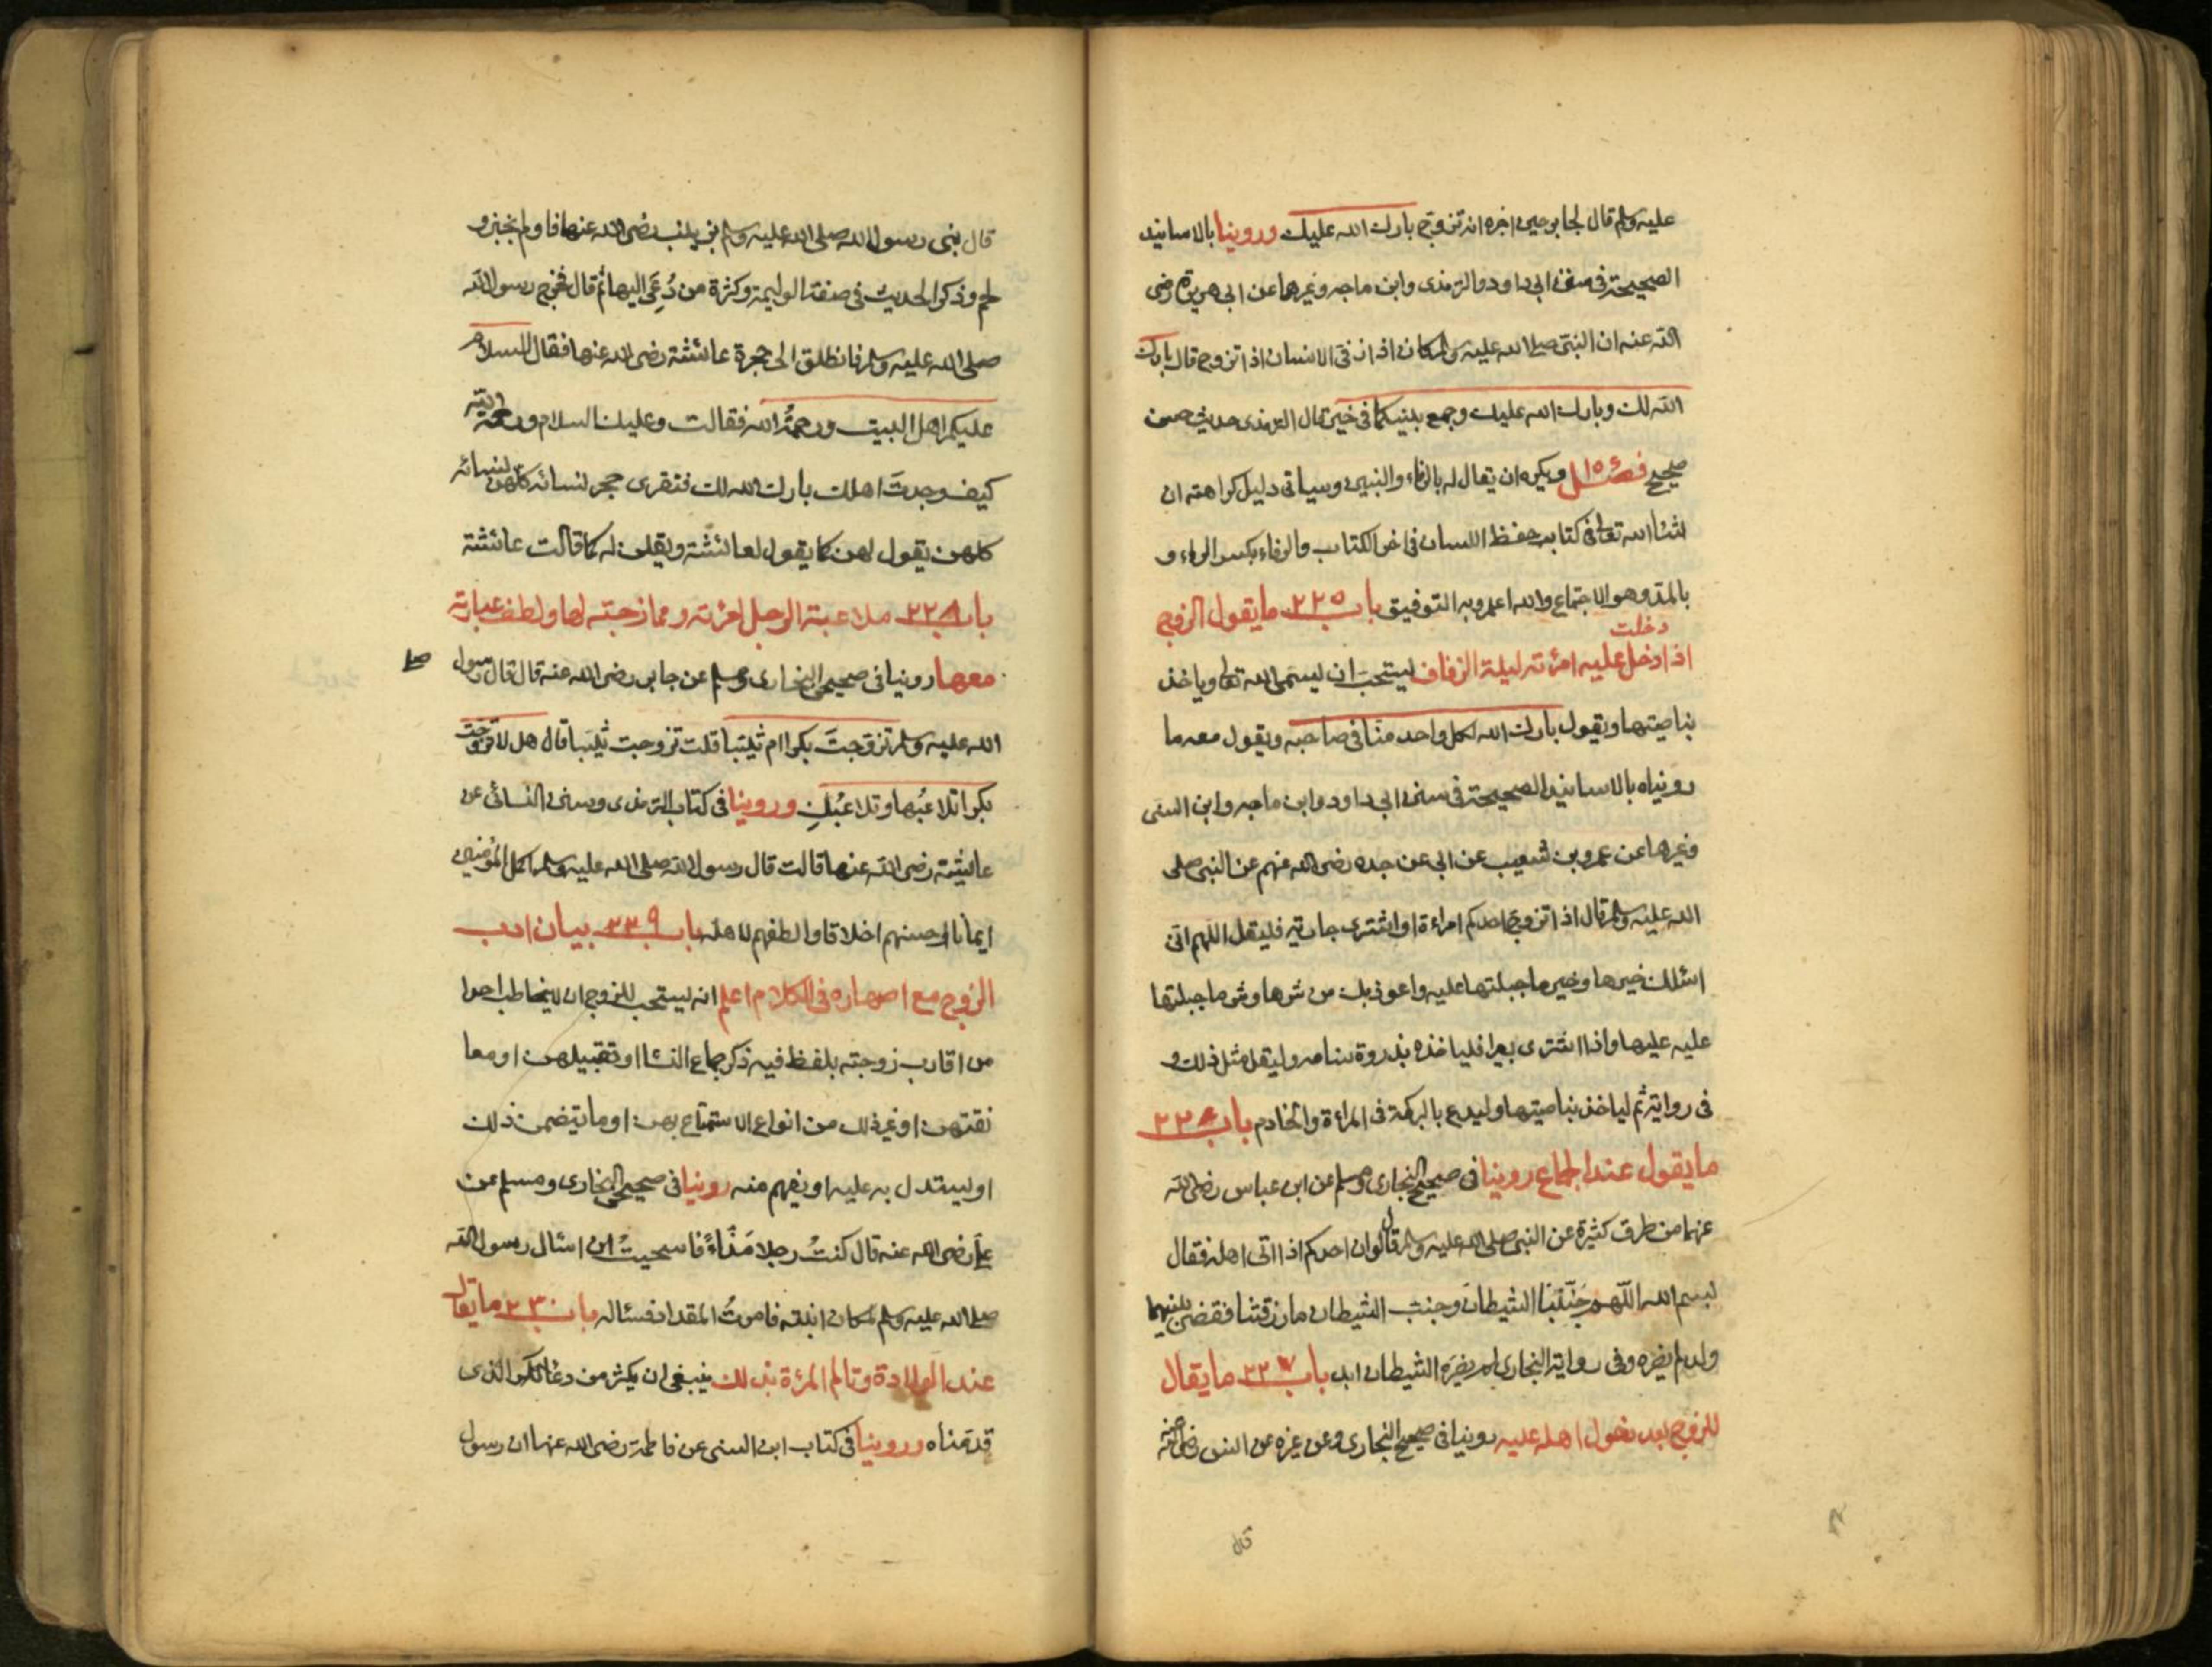 عليه وسلم قال لجابر حين اخبره انه تزوج بارك الله عليك وروينا بالاسانيد
الصحيحة في سنن ابي داود والترمذي وابن ماجه وغيرها عن ابي هريرة رضي
الله عنه ان النبي صلى الله عليه وسلم كان اذا رفئ الانسان اذا تزوج قال بارك
الله لك وبارك الله عليك وجمع بينكما في خير قال الترمذي حديث حسن
صحيح فصل ويكره ان يقال له بالرفاء والبنين وسياتي دليل كراهته ان
شاء الله تعالى في كتاب حفظ اللسان في اخر الكتاب والرفاء بكسر الراء و
بالمد وهو الاجتماع والله اعلم وبه التوفيق باب ٢٢٥ ما يقول الزوج
دخلت
اذا ادخل عليه امرئته ليلة الزفاف يستحب ان يسمي الله تعالى وياخذ
بناصيتها ويقول بارك الله لكل واحد منا في صاحبه ويقول معه ما
رويناه بالاسانيد الصحيحة في سنن ابي داود وابن ماجه وابن السني
وغيرها عن عمرو بن شعيب عن ابي عن جده رضي الله عنهم عن النبي صلى
الله عليه وسلم قال اذا تزوج احدكم امراءة او اشترى جارية فليقل اللهم اني
اسئلك خيرها وخير ما جبلتها عليه واعوذ بك من شرها وشر ما جبلتها
عليه عليها واذا اشترى بعيرا فلياخذه بذروة سنامه وليقل مثل ذلك و
في رواية ثم لياخذ بناصيتها وليدع بالبركة في المراءة والخادم باب ٢٢٦
ما يقول عند الجماع روينا في صحيحي البخاري ومسلم عن ابن عباس رضي الله
عنهما من طرق كثيرة عن النبي صلى الله عليه وسلم قال لو ان احدكم اذا اتى اهله فقال
بسم الله اللهم جنبنا الشيطان وجنب الشيطان ما رزقتنا فقضي بينهما
ولد لم يضره وفي رواية البخاري لم يضره الشيطان ابدا باب ٢٢٧ ما يقال
للزوج بعد دخول اهله عليه روينا في صحيح البخاري وعن غيره عن انس رضي الله عنه
قال
قال بنى رسول الله صلى الله عليه وسلم بزينب رضي الله عنها فاولم بخبز و
لحم وذكر الحديث في صفة الوليمة وكثرة من دُعي اليها ثم قال فخرج رسول الله
صلى الله عليه وسلم فانطلق الى حجرة عائشة رضي الله عنها فقال السلام
عليكم اهل البيت ورحمة الله فقالت وعليك السلام ورحمة الله
كيف وجدت اهلك بارك الله لك فتقرى حجر نسائه كلهن لنسائه
كلهن يقول لهن كما يقول لعائشة ويقلن له كما قالت عائشة
باب ٢٢٨ ملاعبة الرجل امرئته وممازحته لها ولطف عبارته
معها روينا في صحيحي البخاري ومسلم عن جابر رضي الله عنه قال قال رسول صلى
الله عليه وسلم تزوجت بكرا ام ثيبا قلت تزوجت ثيبا قال هل لا تزوجت
بكرا تلاعبها وتلاعبك وروينا في كتاب الترمذي وسنن النسائي عن
عائشة رضي الله عنها قالت قال رسول الله صلى الله عليه وسلم اكمل المؤمنين
ايمانا احسنهم اخلاقا والطفهم لاهله باب ٢٢٩ بيان ادب
الزوج مع اصهاره في الكلام اعلم انه يستحب للزوج ان لا يخاطب احدا
من اقارب زوجته بلفظ فيه ذكر جماع النساء او تقبيلهن او معا
نقتهن او غير ذلك من انواع الاستمتاع بهن او ما يتضمن ذلك
او يستدل به عليه او يفهم منه روينا في صحيحي البخاري ومسلم عن
علي رضي الله عنه قال كنت رجلا مذاء فاستحييت ان اسئال رسول الله
صلى الله عليه وسلم لمكان ابنته فامرت المقداد فسئاله باب ٢٣٠ ما يقال
عند الولادة وتالم المرئة بذلك ينبغي ان يكثر من دعاء الكرب الذي
قدمناه وروينا في كتاب ابن السني عن فاطمة رضي الله عنها ان رسول